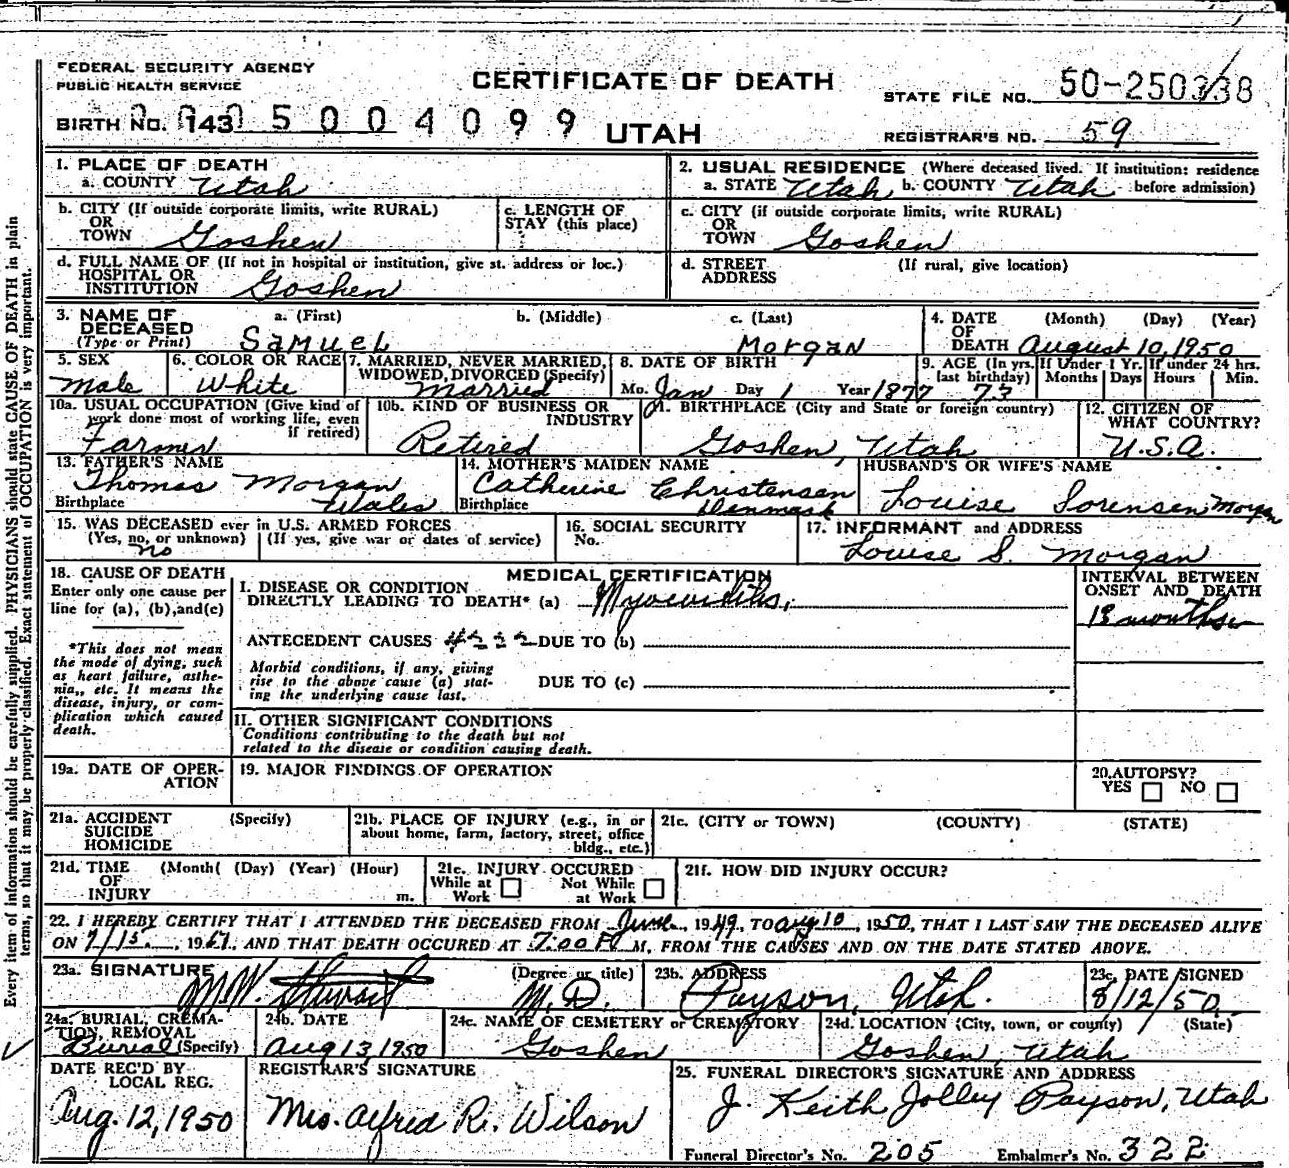 FEDERAL SECURITY AGENCY
PUBLIC HEALTH SERVICE
CERTIFICATE OF DEATH
STATE FILE NO. 50-250338
BIRTH NO. 143 5004099 UTAH
REGISTRAR'S NO. 59
Every item of information should be carefully supplied. PHYSICIANS should state CAUSE OF DEATH in plain
terms, so that it may be properly classified. Exact statement of OCCUPATION is very important.
1. PLACE OF DEATH
a. COUNTY Utah
2. USUAL RESIDENCE (Where deceased lived. If institution: residence
a. STATE Utah b. COUNTY Utah before admission)
b. CITY (If outside corporate limits, write RURAL)
OR
TOWN Goshen
c. LENGTH OF
STAY (this place)
c. CITY (if outside corporate limits, write RURAL)
OR
TOWN Goshen
d. FULL NAME OF (If not in hospital or institution, give st. address or loc.)
HOSPITAL OR
INSTITUTION Goshen
d. STREET (If rural, give location)
ADDRESS
3. NAME OF a. (First) b. (Middle) c. (Last)
DECEASED
(Type or Print) Samuel Morgan
4. DATE (Month) (Day) (Year)
OF
DEATH August 10, 1950
5. SEX
Male
6. COLOR OR RACE
White
7. MARRIED, NEVER MARRIED,
WIDOWED, DIVORCED (Specify)
Married
8. DATE OF BIRTH
Mo. Jan Day 1 Year 1877
9. AGE (In yrs. If Under 1 Yr. If under 24 hrs.
last birthday) Months Days Hours Min.
73
10a. USUAL OCCUPATION (Give kind of
work done most of working life, even
if retired)
Farmer
10b. KIND OF BUSINESS OR
INDUSTRY
Retired
11. BIRTHPLACE (City and State or foreign country)
Goshen, Utah
12. CITIZEN OF
WHAT COUNTRY?
U.S.A.
13. FATHER'S NAME
Thomas Morgan
Birthplace Wales
14. MOTHER'S MAIDEN NAME
Catherine Christensen
Birthplace Denmark
HUSBAND'S OR WIFE'S NAME
Louise Sorensen Morgan
15. WAS DECEASED ever in U.S. ARMED FORCES
(Yes, no, or unknown) (If yes, give war or dates of service)
no
16. SOCIAL SECURITY
No.
17. INFORMANT and ADDRESS
Louise S. Morgan
18. CAUSE OF DEATH
Enter only one cause per
line for (a), (b), and (c)
*This does not mean
the mode of dying, such
as heart failure, asthe-
nia,, etc. It means the
disease, injury, or com-
plication which caused
death.
MEDICAL CERTIFICATION
I. DISEASE OR CONDITION
DIRECTLY LEADING TO DEATH* (a) Myocarditis,
ANTECEDENT CAUSES 4222 DUE TO (b)
Morbid conditions, if any, giving
rise to the above cause (a) stat-
ing the underlying cause last.
DUE TO (c)
II. OTHER SIGNIFICANT CONDITIONS
Conditions contributing to the death but not
related to the disease or condition causing death.
INTERVAL BETWEEN
ONSET AND DEATH
months
19a. DATE OF OPER-
ATION
19. MAJOR FINDINGS OF OPERATION
20. AUTOPSY?
YES NO
21a. ACCIDENT (Specify)
SUICIDE
HOMICIDE
21b. PLACE OF INJURY (e.g., in or
about home, farm, factory, street, office
bldg., etc.)
21c. (CITY or TOWN) (COUNTY) (STATE)
21d. TIME (Month( (Day) (Year) (Hour)
OF
INJURY m.
21e. INJURY OCCURED
While at Not While
Work at Work
21f. HOW DID INJURY OCCUR?
22. I HEREBY CERTIFY THAT I ATTENDED THE DECEASED FROM June, 1949, TO Aug 10, 1950, THAT I LAST SAW THE DECEASED ALIVE
ON 7/15, 19 , AND THAT DEATH OCCURED AT 7:00 P M, FROM THE CAUSES AND ON THE DATE STATED ABOVE.
23a. SIGNATURE (Degree or title)
M.W. Stewart M.D.
23b. ADDRESS
Payson, Utah.
23c. DATE SIGNED
8/12/50
24a. BURIAL, CREMA-
TION, REMOVAL
Burial (Specify)
24b. DATE
Aug 13, 1950
24c. NAME OF CEMETERY or CREMATORY
Goshen
24d. LOCATION (City, town, or county) (State)
Goshen, Utah
DATE REC'D BY
LOCAL REG.
Aug. 12, 1950
REGISTRAR'S SIGNATURE
Mrs. Alfred R. Wilson
25. FUNERAL DIRECTOR'S SIGNATURE AND ADDRESS
J. Keith Jolley Payson, Utah
Funeral Director's No. 205 Embalmer's No. 322